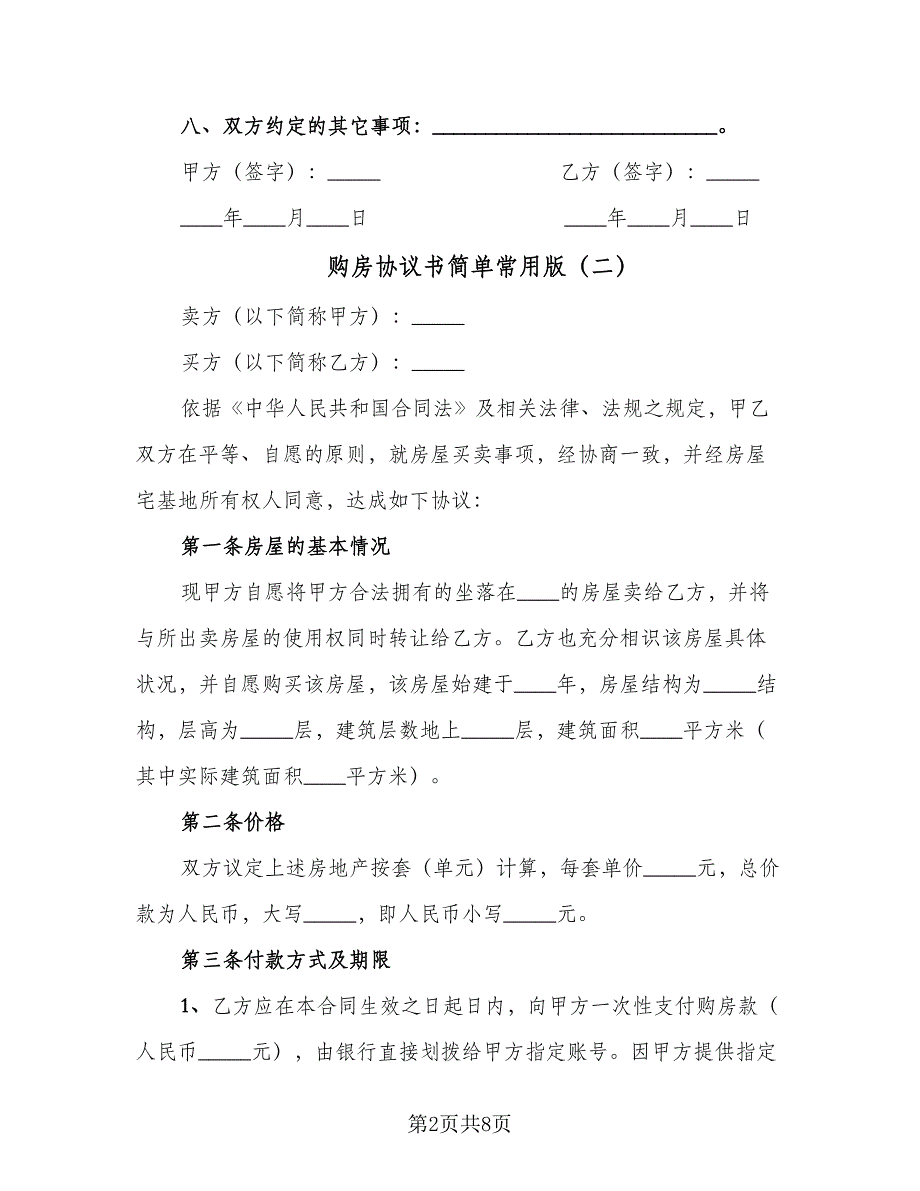 八、双方约定的其它事项：___________________________。
甲方（签字）：_____ 乙方（签字）：_____
____年____月____日 ____年____月____日
购房协议书简单常用版（二）
卖方（以下简称甲方）：_____
买方（以下简称乙方）：_____
依据《中华人民共和国合同法》及相关法律、法规之规定，甲乙
双方在平等、自愿的原则，就房屋买卖事项，经协商一致，并经房屋
宅基地所有权人同意，达成如下协议：
第一条房屋的基本情况
现甲方自愿将甲方合法拥有的坐落在____的房屋卖给乙方，并将
与所出卖房屋的使用权同时转让给乙方。乙方也充分相识该房屋具体
状况，并自愿购买该房屋，该房屋始建于____年，房屋结构为_____结
构，层高为_____层，建筑层数地上_____层，建筑面积____平方米（
其中实际建筑面积____平方米）。
第二条价格
双方议定上述房地产按套（单元）计算，每套单价_____元，总价
款为人民币，大写_____，即人民币小写_____元。
第三条付款方式及期限
1、乙方应在本合同生效之日起日内，向甲方一次性支付购房款（
人民币_____元），由银行直接划拨给甲方指定账号。因甲方提供指定
第2页共8页